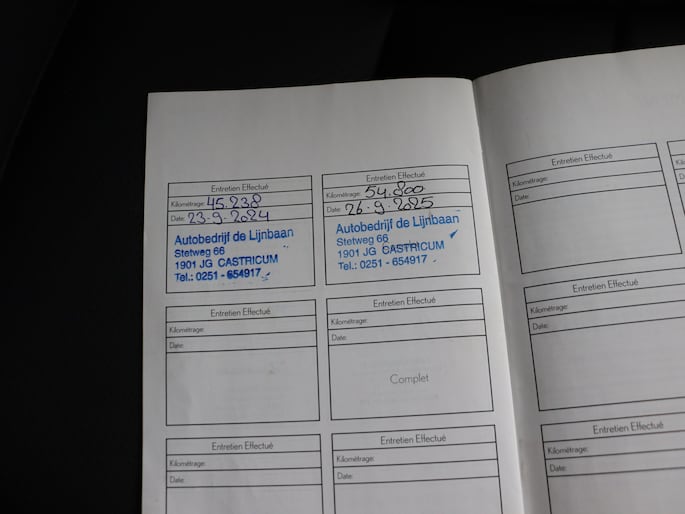 Entretien Effectué
Kilométrage: 45.238
Date: 23-9-2024
Autobedrijf de Lijnbaan
Stetweg 66
1901 JG CASTRICUM
Tel.: 0251 - 654917
Entretien Effectué
Kilométrage: 54.800
Date: 26-9-2025
Autobedrijf de Lijnbaan
Stetweg 66
1901 JG CASTRICUM
Tel.: 0251 - 654917
Entretien Effectué
Kilométrage:
Date:
Entretien Effectué
Kilométrage:
Date:
Complet
Entretien Effectué
Kilométrage:
Date:
Entretien Effectué
Kilométrage:
Date:
Entretien Effectué
Kilométrage:
Date:
Entretien Effectué
Kilométrage:
Date:
Entretien Effectué
Kilométrage:
Date: